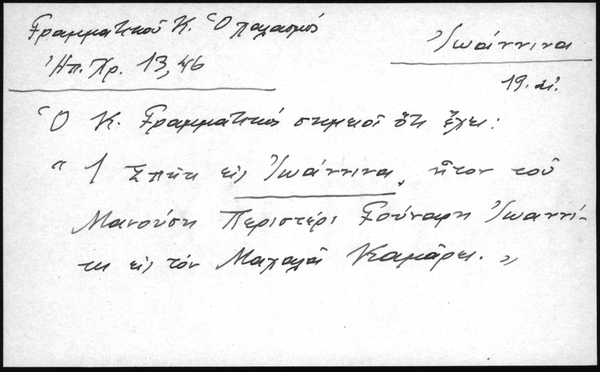 Γραμματικοῦ Κ. Ὁ παλασμός
Ἠπ. Χρ. 13, 46
Ἰωάννινα
19. αἰ.
Ὁ Κ. Γραμματικός σημειοῖ ὅτι ἔχει:
“ 1 Σπίτι εἰς Ἰωάννινα, ἤτον τοῦ
Μανούση Περιστέρι Γούναρη Ἰωαννί-
τη εἰς τόν Μαχαλᾶ Καμάρει. „